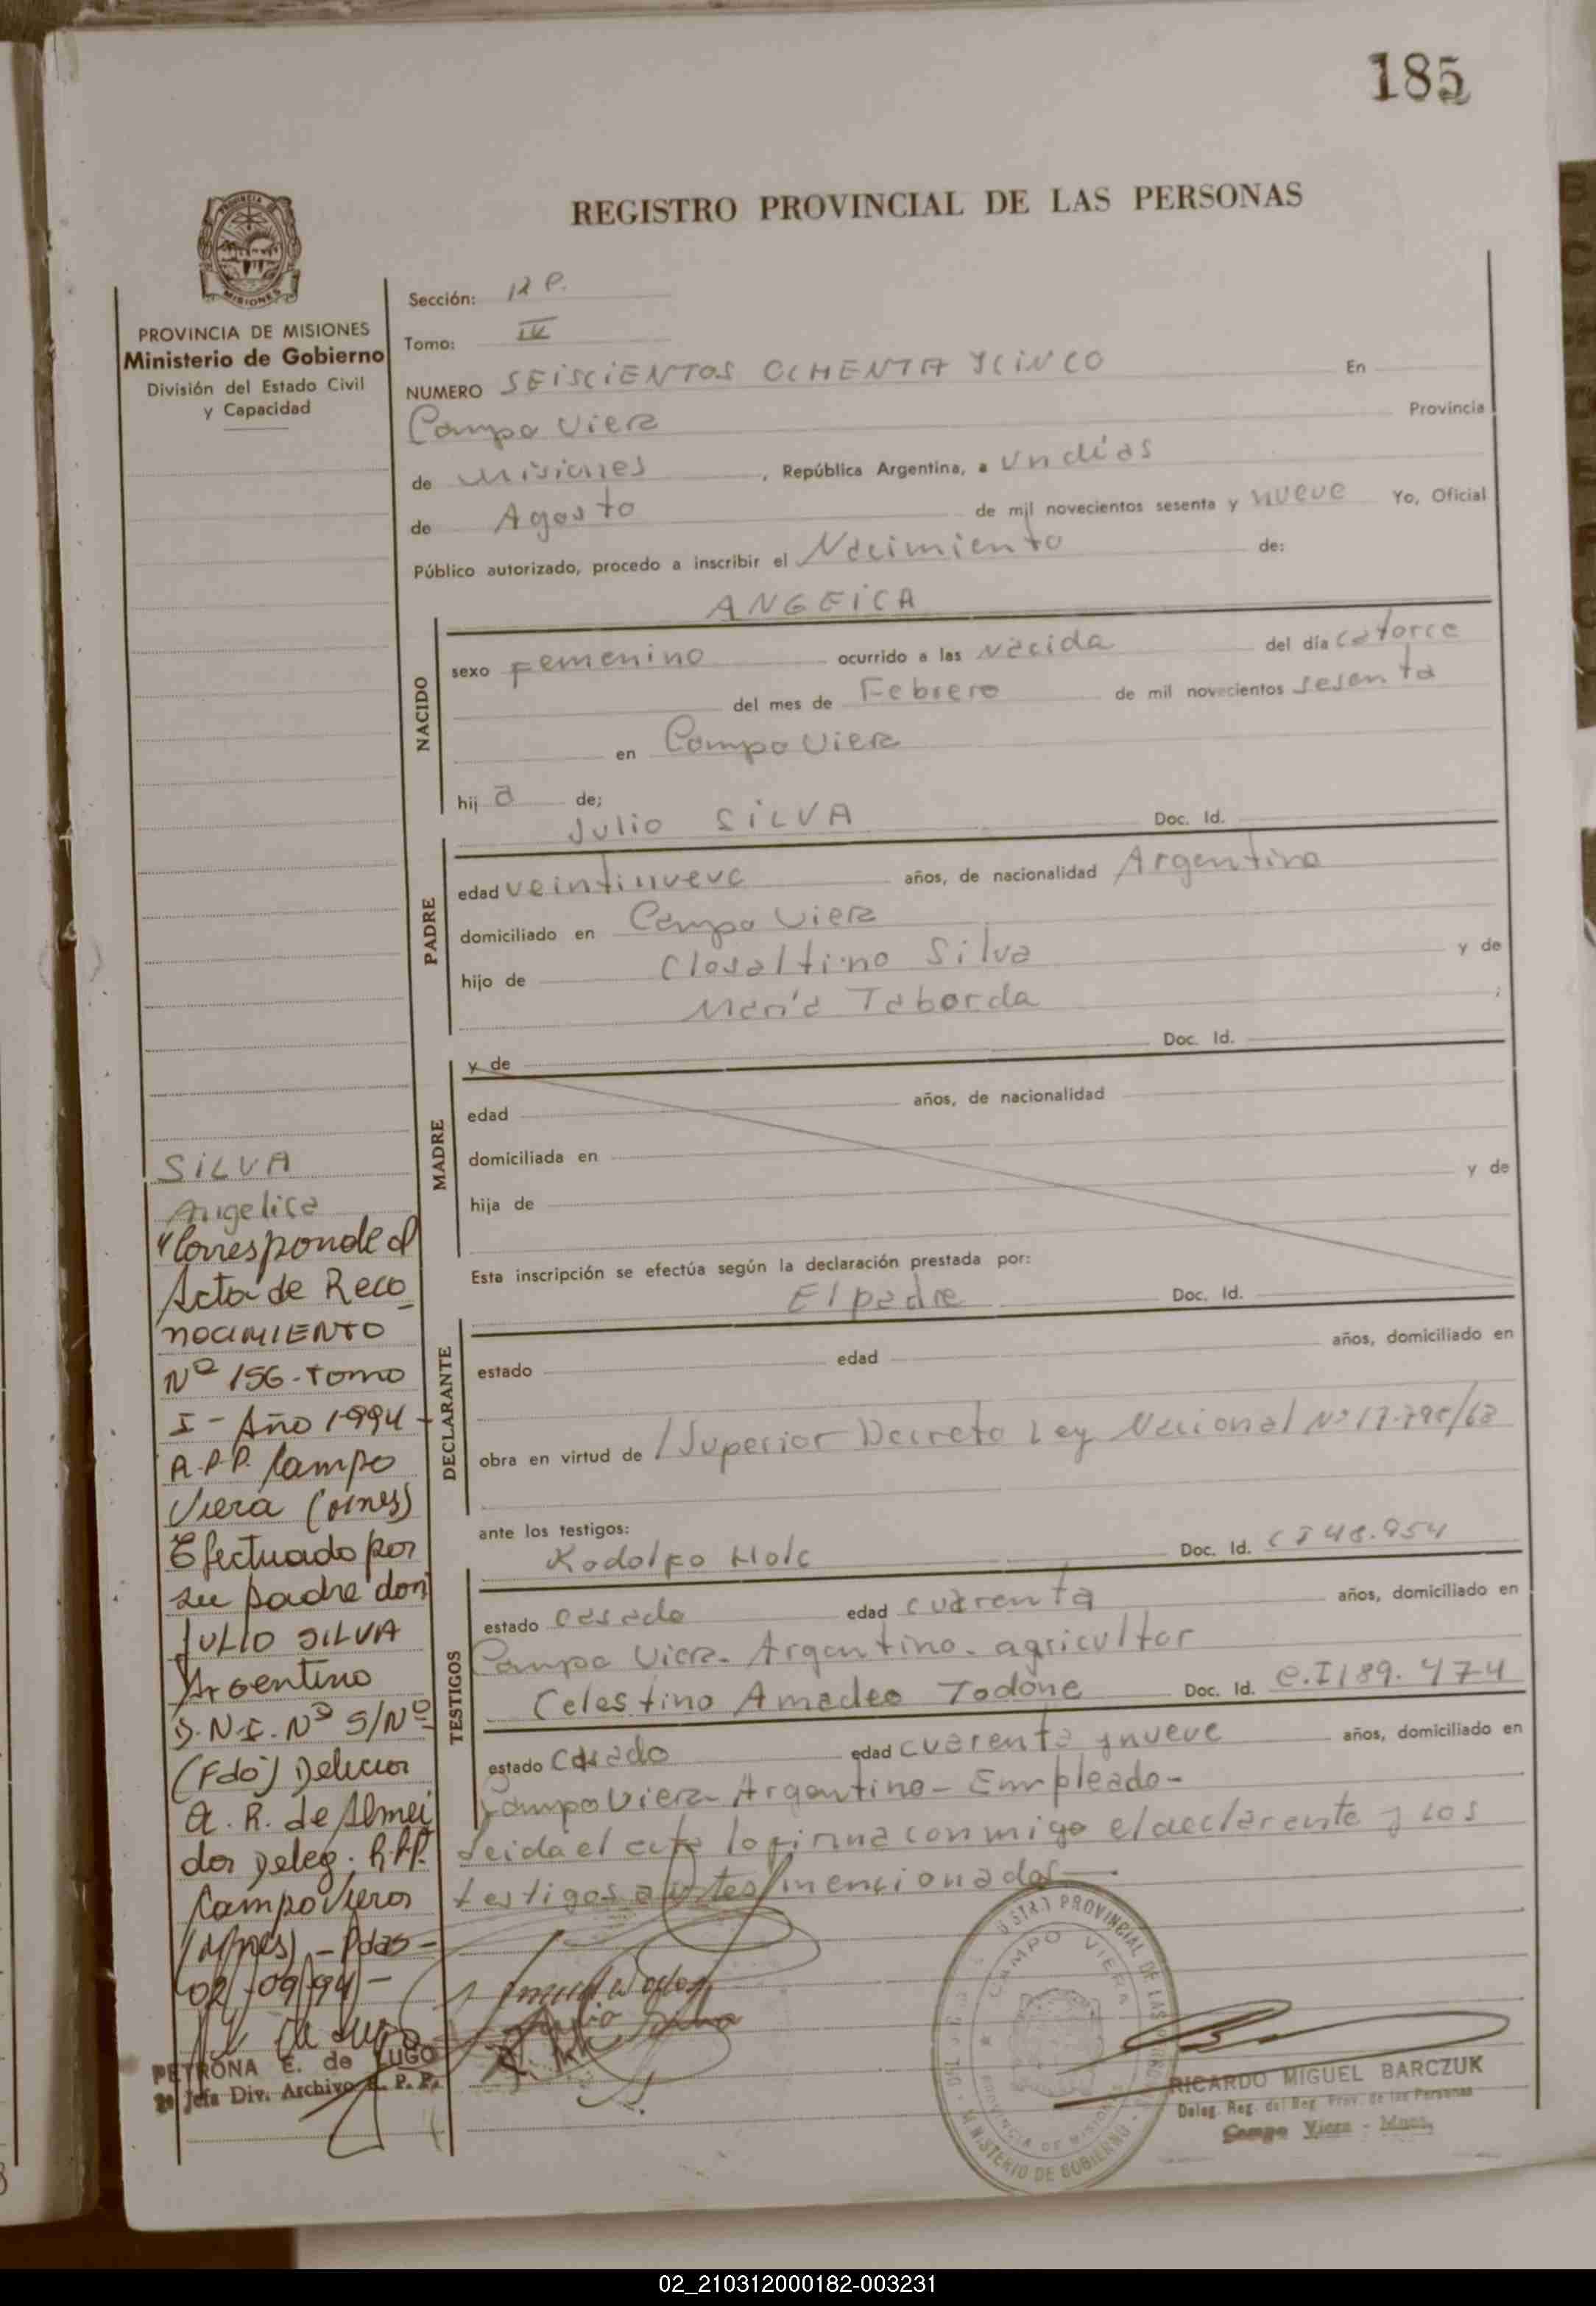 185
REGISTRO PROVINCIAL DE LAS PERSONAS
PROVINCIA DE MISIONES
Ministerio de Gobierno
División del Estado Civil
y Capacidad
Sección: R P.
Tomo: IV
NUMERO SEISCIENTOS OCHENTA Y CINCO En
Campo Viera Provincia
de Misiones, República Argentina, a un días
de Agosto de mil novecientos sesenta y nueve Yo, Oficial
Público autorizado, procedo a inscribir el Nacimiento de:
ANGEICA
NACIDO
sexo Femenino ocurrido a las nacida del día catorce
del mes de Febrero de mil novecientos sesenta
en Campo Viera
hij a de;
Julio SILVA Doc. Id.
PADRE
edad veintinueve años, de nacionalidad Argentina
domiciliado en Campo Viera
hijo de Closaltino Silva y de
María Taborda ;
MADRE
y de Doc. Id.
edad años, de nacionalidad
domiciliada en
hija de y de
Esta inscripción se efectúa según la declaración prestada por:
El padre Doc. Id.
DECLARANTE
estado edad años, domiciliado en
obra en virtud de /Superior Decreto Ley Nacional Nº
ante los testigos:
TESTIGOS
Rodolfo Holc Doc. Id. CI 48.954
estado casado edad cuarenta años, domiciliado en
Campo Viera. Argentino. agricultor
Celestino Amadeo Todone Doc. Id. C.I 189.474
estado casado edad cuarenta y nueve años, domiciliado en
Campo Viera Argentino - Empleado -
Leida el acta lo firma conmigo el declarante y los
testigos antes mencionados
SILVA
Angelica
"Corresponde al
Acta de Reco
nocimiento
Nº 156 - Tomo
I - Año 1994 -
R.P.P. Campo
Viera (Mnes)
Efectuado por
su padre don
JULIO SILVA
Argentino
D.N.I. Nº S/Nº
(Fdo)
A. R. de Almei
da Deleg. R.P.P.
Campo Viera
(Mnes) - Pdas -
02/-09/94 -
PETRONA E. de LUGO
2ª Jefa Div. Archivo R. P. P.
Julio Silva
REGISTRO PROVINCIAL DE LAS PERSONAS
CAMPO VIERA
PROVINCIA DE MISIONES
MINISTERIO DE GOBIERNO
RICARDO MIGUEL BARCZUK
Deleg. Reg. del Reg. Prov. de las Personas
Campo Viera - Mnes.
02_210312000182-003231